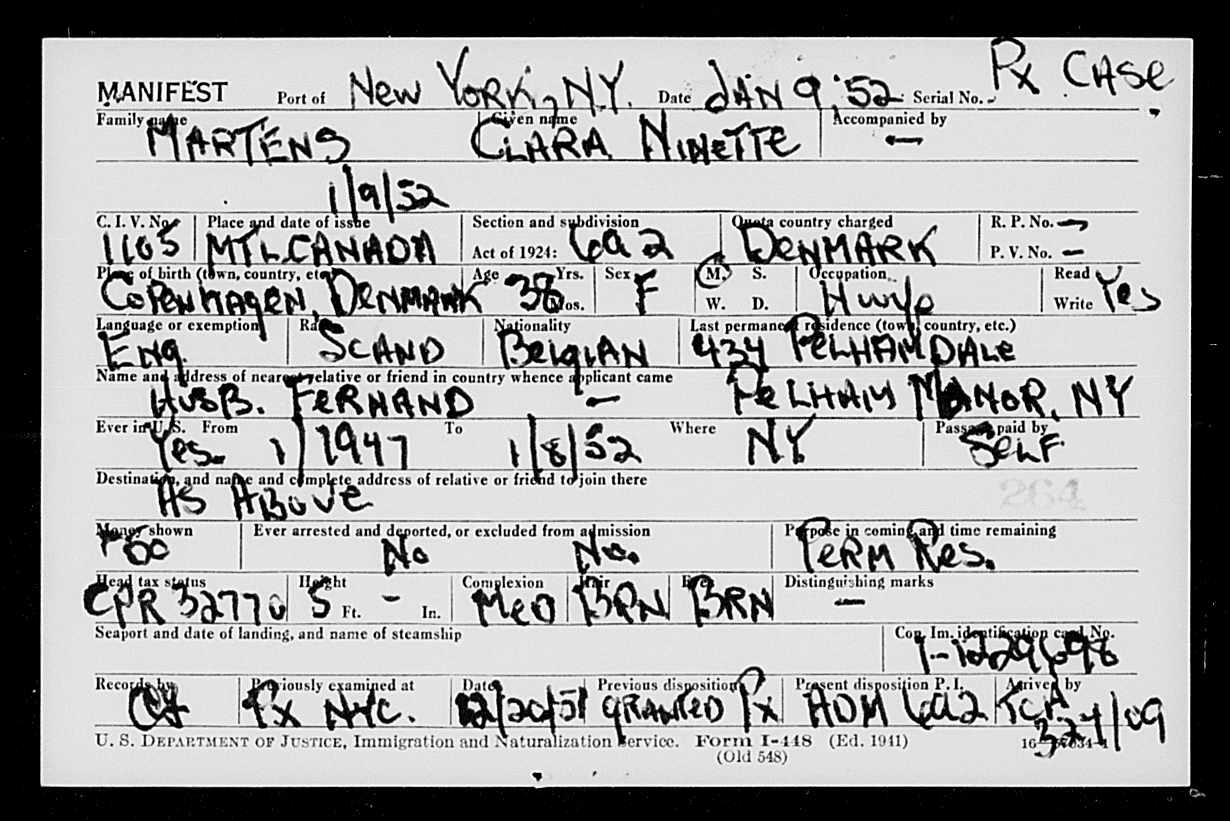 Px CASE
MANIFEST Port of NEW YORK, N.Y. Date JAN 9, '52 Serial No. -
Family name MARTENS Given name CLARA NINETTE Accompanied by —
1/9/52
C. I. V. No. Place and date of issue Section and subdivision Quota country charged R. P. No. —
1165 MTL CANADA Act of 1924: 6A2 DENMARK P. V. No. —
Place of birth (town, country, etc.) Age 38 Yrs. Mos. Sex F M. S. W. D. Occupation Read Write Yes
COPENHAGEN, DENMARK HWife
Language or exemption Race Nationality Last permanent residence (town, country, etc.)
ENG. SCAND BELGIAN 434 PELHAMDALE
Name and address of nearest relative or friend in country whence applicant came
HUSB. FERNAND — PELHAM MANOR, NY
Ever in U.S. From To Where Passage paid by
Yes. 1/1947 1/8/52 NY SELF
Destination, and name and complete address of relative or friend to join there
AS ABOVE 264
Money shown Ever arrested and deported, or excluded from admission Purpose in coming and time remaining
50 No No. PERM RES.
Head tax status Height Complexion Hair Eyes Distinguishing marks
CPR 32770 5 Ft. - In. MED BRN BRN —
Seaport and date of landing, and name of steamship Con. Im. identification card No.
I-1229698
Records by Previously examined at Date Previous disposition Present disposition P. I. Arrived by
Px NYC. 12/20/51 GRANTED Px ADM 6A2 TCA
324/09
U. S. DEPARTMENT OF JUSTICE, Immigration and Naturalization Service. Form I-448 (Ed. 1941)
(Old 548)